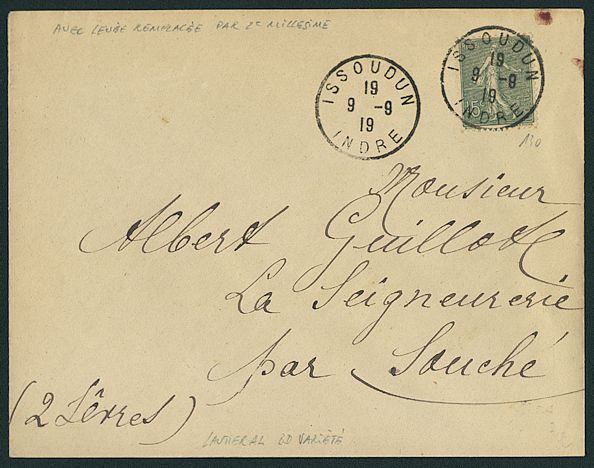 AVEC LEVÉE REMPLACÉE PAR 2e MILLESIME
ISSOUDUN
19
9 -9
19
INDRE
ISSOUDUN
19
9 -9
19
INDRE
15c
130
Monsieur
Albert Guillott
La Seigneurerie
par Souché
(2 Sêvres)
VARIÉTÉ